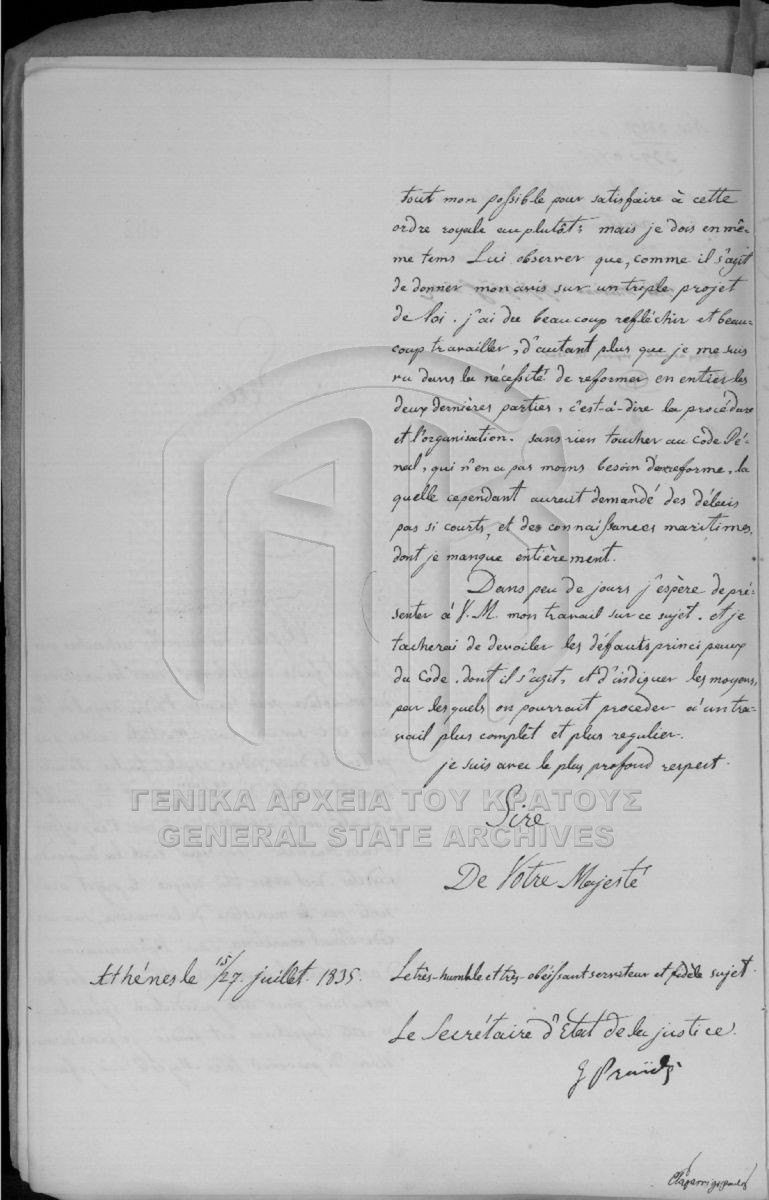 tout mon possible pour satisfaire à cette
ordre royale au plutôt; mais je dois en mê-
me tems Lui observer que, comme il s'agit
de donner mon avis sur un triple projet
de loi. j'ai du beaucoup refléchir et beau-
coup travailler, d'autant plus que je me suis
vu dans la nécessité de reformer en entier les
deux dernières parties, c'est-à-dire la procédure
et l'organisation. sans rien toucher au Code Pé-
nal, qui n'en a pas moins besoin de reforme. la
quelle cependant auroit demandé des délais
pas si courts, et des connaissances maritimes,
dont je manque entièrement.
Dans peu de jours j'espère de pré-
senter à V. M. mon travail sur ce sujet. et je
tacherai de devoiler les défauts principaux
du Code. dont il s'agit, et d'indiquer les moyens,
par lesquels on pourrait proceder à un tra-
vail plus complet et plus regulier.
je suis avec le plus profond respect.
Sire
ΓΕΝΙΚΑ ΑΡΧΕΙΑ ΤΟΥ ΚΡΑΤΟΥΣ
GENERAL STATE ARCHIVES
De Votre Majesté
Athénes le 15/27. juillet. 1835.
Le très-humble et très-obéissant serviteur et fidèle sujet.
Le Secrétaire d'Etat de la justice.
G Praïdis